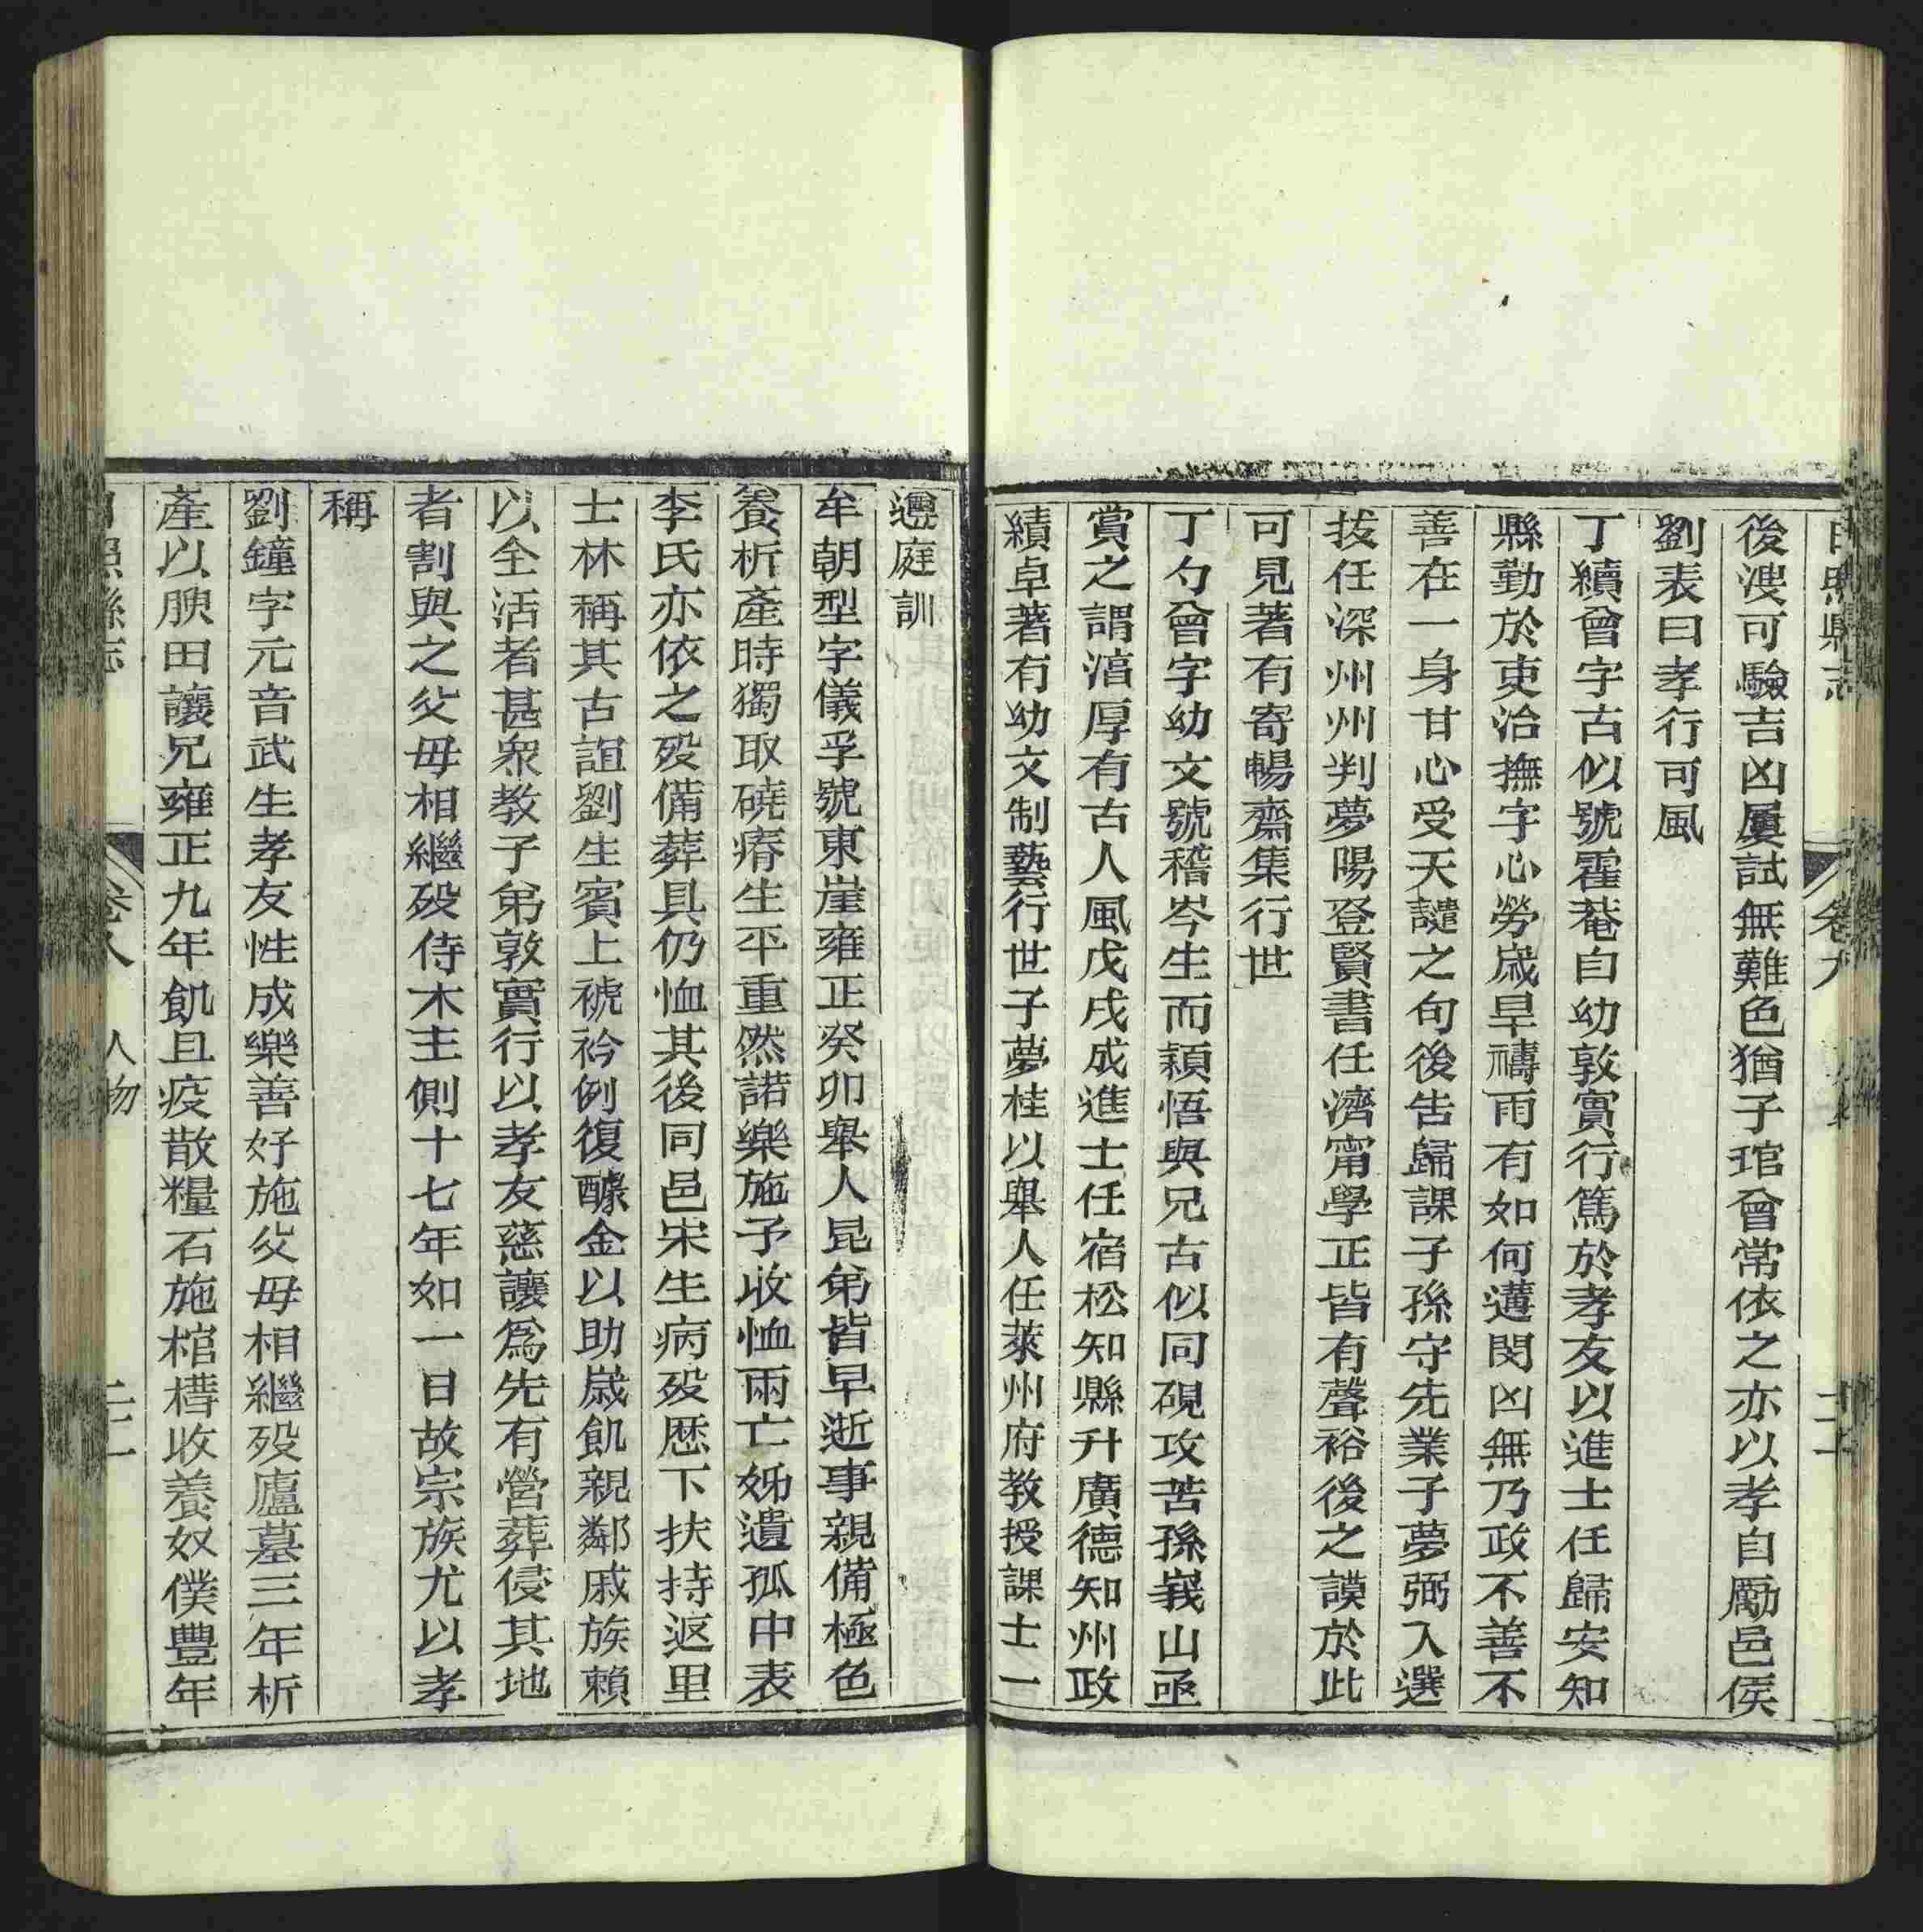 日照縣志 卷八 人物
後溲可驗吉凶屢試無難色猶子琯曾常依之亦以孝自勵邑侯
劉表曰孝行可風
丁續曾字古似號霍菴自幼敦實行篤於孝友以進士任歸安知
縣勤於吏治撫字心勞歲旱禱雨有如何遘閔凶無乃政不善不
善在一身甘心受天譴之句後告歸課子孫守先業子夢弼入選
拔任深州州判夢陽登賢書任濟甯學正皆有聲裕後之謨於此
可見著有寄暢齋集行世
丁勺曾字幼文號稽岑生而穎悟與兄古似同硯攻苦孫峩山亟
賞之謂渟厚有古人風戊戌成進士任宿松知縣升廣德知州政
績卓著有幼文制藝行世子夢桂以舉人任萊州府教授課士一
遵庭訓
牟朝型字儀孚號東崖雍正癸卯舉人昆弟皆早逝事親備極色
養析產時獨取磽瘠生平重然諾樂施予收恤兩亡姊遺孤中表
李氏亦依之歿備葬具仍恤其後同邑宋生病歿歷下扶持返里
士林稱其古誼劉生賓上褫衿例復醵金以助歲飢親鄰戚族賴
以全活者甚衆教子弟敦實行以孝友慈讓爲先有營葬侵其地
者割與之父母相繼歿侍木主側十七年如一日故宗族尤以孝
稱
劉鐘字元音武生孝友性成樂善好施父母相繼歿廬墓三年析
產以腴田讓兄雍正九年飢且疫散糧石施棺槥收養奴僕豐年
日照縣志 卷八 人物